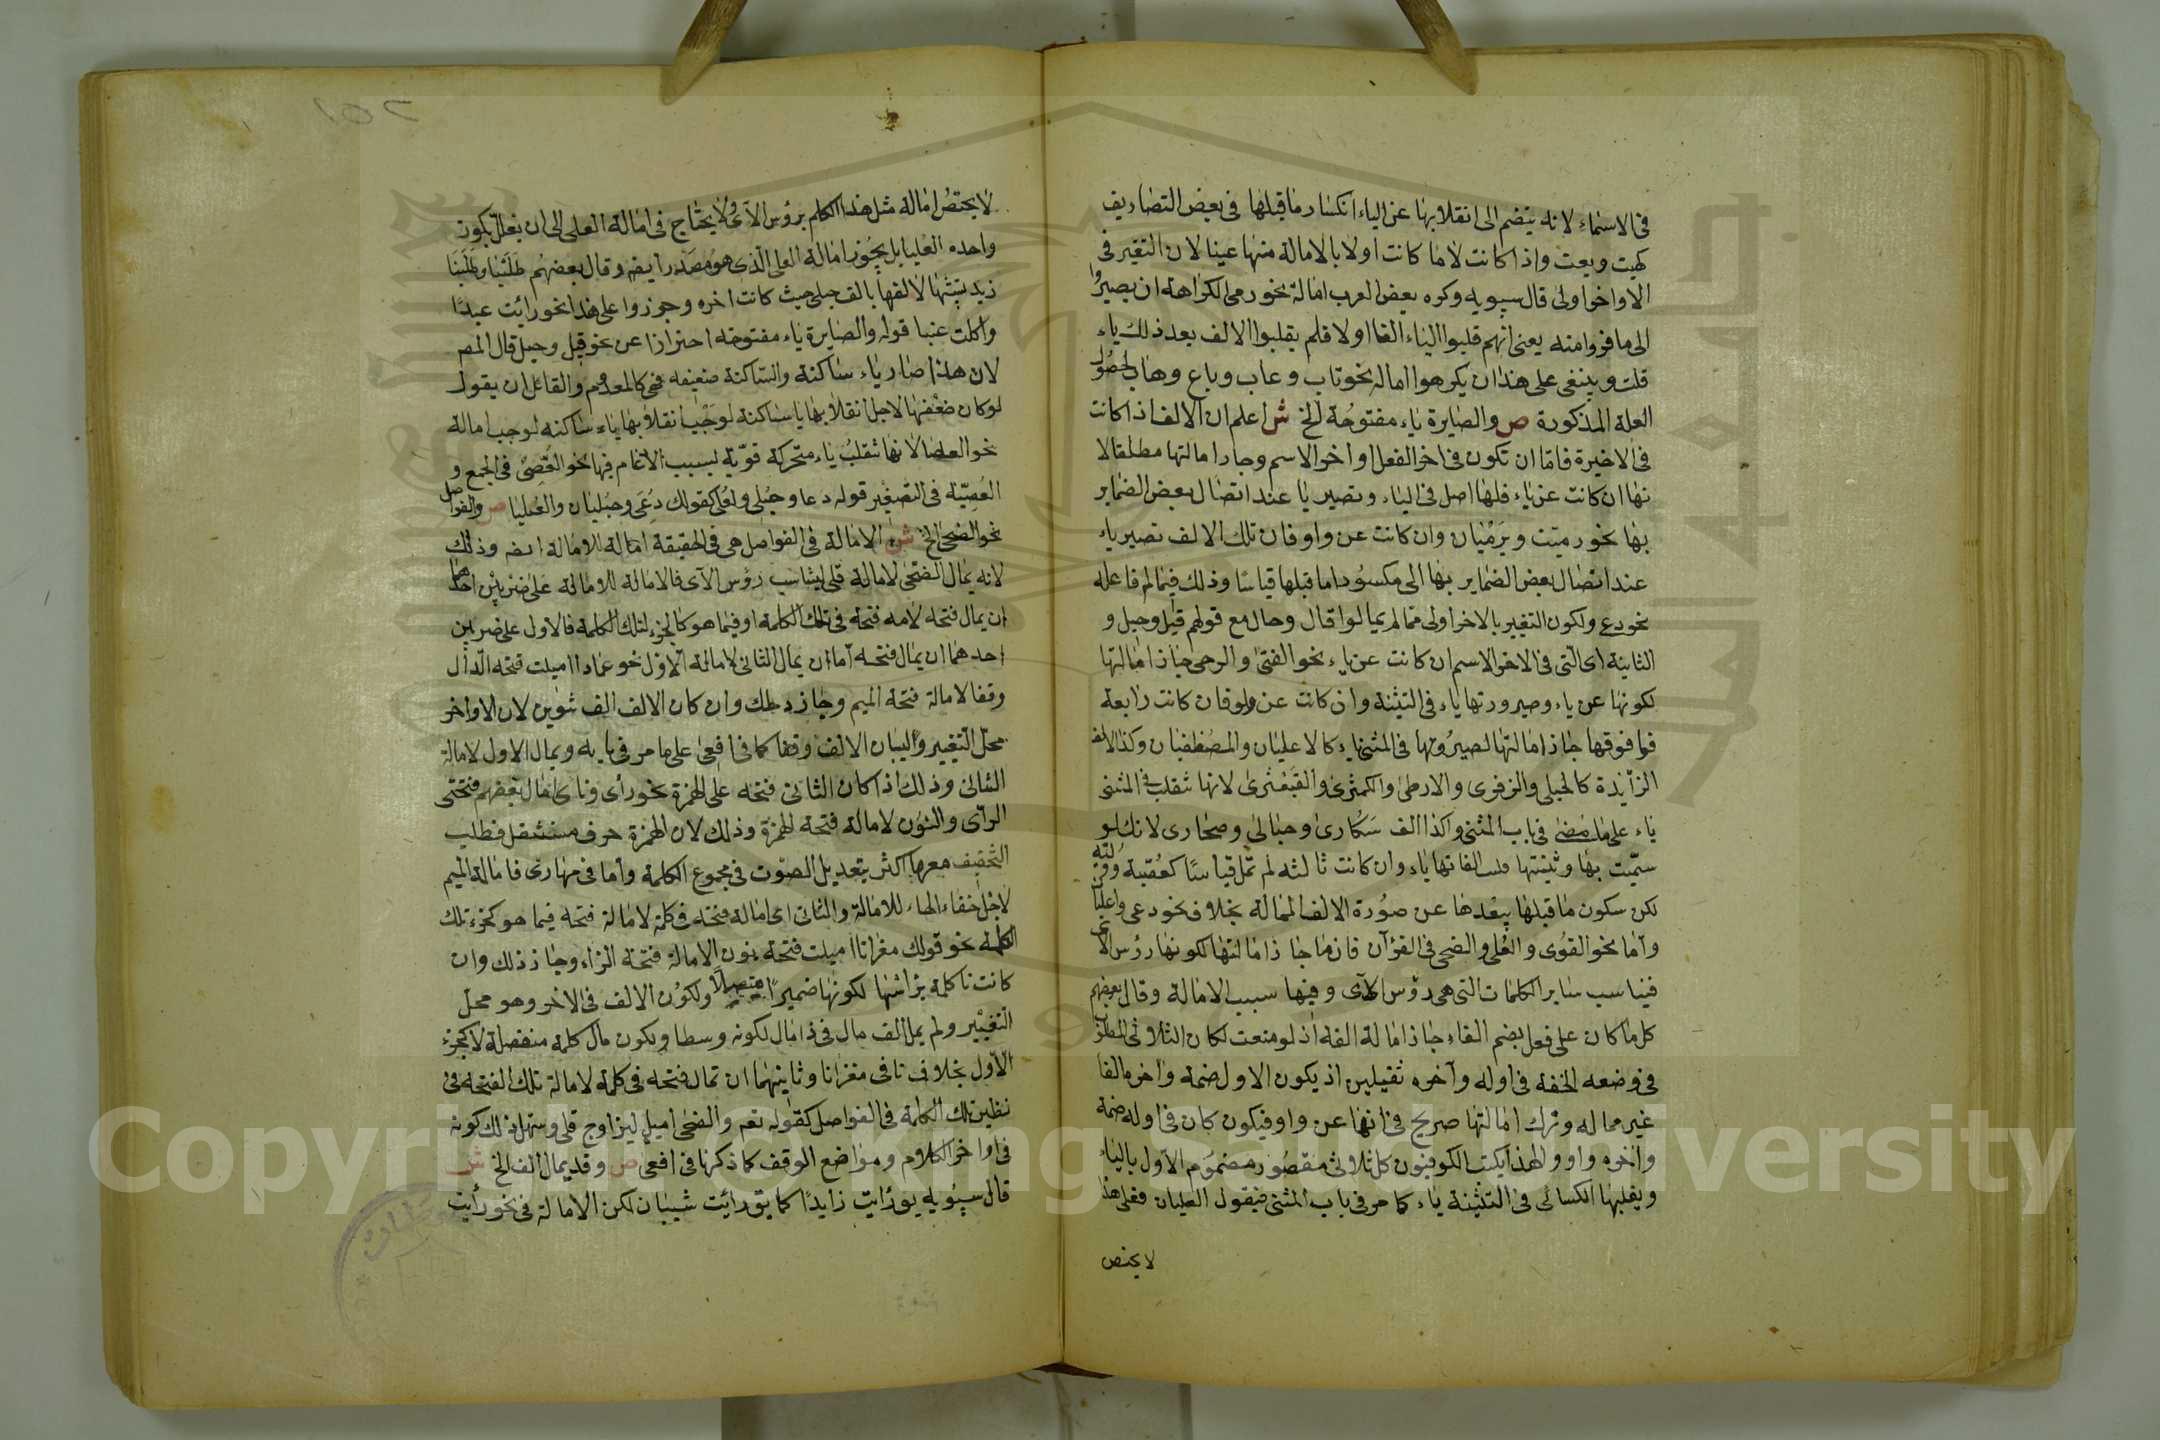 في الاسماء لانه ينضم الى انقلابها عن الياء انكسار ما قبلها في بعض التصاريف
كهبت وبعت واذا كانت لاما كانت اولا بالامالة منها عينا لان التغير في
الاواخر اولى قال سيبويه وكره بعض العرب امالة نحو رمى لكراهة ان يصيروا
الى ما فروا منه يعنى انهم قلبوا الياء الفا اولا فلم يقلبوا الالف بعد ذلك ياء
قلت وينبغى على هذا ان يكرهوا امالة نحو تاب وعاب وباع وهاب لحصول
العلة المذكورة ص والصايرة ياء مفتوحة الخ ش اعلم ان الالف اذا كانت
في الاخيرة فاما ان تكون في اخر الفعل او اخر الاسم وجاز امالتها مطلقا لا
نها ان كانت عن ياء فلها اصل في الياء وتصير يا عند اتصال بعض الضماير
بها نحو رميت ويرميان وان كانت عن واو فان تلك الالف تصير ياء
عند اتصال بعض الضماير بها الى مكسور اما قبلها قياسا وذلك فيما لم فاعله
نحو دعى ولكون التغيير بالاخر اولى مما لم يمالوا قال وحال مع قولهم قيل وحيل و
الثانية اى التى في الاخر الاسم ان كانت عن ياء نحو الفتى والرحى جاز امالتها
لكونها عن ياء وصيرورتها ياء في التثنة وان كانت عن واو فان كانت رابعة
فما فوقها جاز امالتها لصيرورتها في المثنى ياء كالاعليان والمصطفيان وكذا الالف
الزائدة كالحبلى والزفرى والارطى والكمثرى والقبعثرى لانها تنقلب في المثنى
ياء على ما مضى في باب المثنى وكذا الف سكارى وحبالى وصحارى لانك لو
سميت بها وثنيتها الفاتها ياء وان كانت ثالثه لم تمل قياسا
لكن سكون ما قبلها يبعدها عن صورة الالف الممالة بخلاف نحو دعى واعليا
واما نحو القوى والعلى والضحى في القرآن فان ما جاز امالتها لكونها رؤس الآى
فيناسب ساير الكلمات التى هى رؤس الآى وفيها سبب الامالة وقال بعضهم
كل ما كان على فعل بضم الفاء جاز امالة الفه اذ لو منعت لكان الثلاثى المطلوب
في وضعه الخفة في اوله وآخره ثقيلين اذ يكون الاول ضمة وآخره الفا
غير ممالة وترك امالتها صريح في انها عن واو فيكون كان في اوله ضمة
وآخره واو ولهذا يكتب الكوفيون كل ثلاثى مقصور مضموم الاول بالياء
ويقلبها الكسائى في التثنية ياء كما مر في باب المثنى فيقول العليان فعلى هذا
لا يختص
لا يختص امالة مثل هذا الكلم برؤس الآى ولا يحتاج في امالة العلى الى ان يعلل بكون
واحده العليا بل يجوز امالة العلى الذى هو مصدر ايضه وقال بعضهم طلبنا وطلبنا
زيد لالفها بالف حبلى حيث كانت اخره وجوزوا على هذا نحو رايت عبدا
واكلت عنبا قوله والصايرة ياء مفتوحة احترازا عن نحو قيل وحيل قال المصـ
لان هذا صار ياء ساكنة والساكنة ضعيفه فهى كالمعدوم والقائل ان يقول
لو كان ضعفها لاجل انقلابها يا ساكنة لوجب انقلابها ياء ساكنة لوجب امالة
نحو العصا لانها تنقلب ياء متحركة قوية بسبب الادغام فيها نحو العصى في الجمع و
العصية في التصغير قوله دعا وحبلى وعلى كقولك دعى وحبليان والعليا ص والفواصل
نحو الضحى الخ ش الامالة في الفواصل هى في الحقيقة امالة للامالة ايضه وذلك
لانه يمال الضحى لامالة قلى ليناسب رؤس الآى فالامالة للامالة على ضربين احدها
ان يمال فتحه لامه فتحة في تلك الكلمة او فيما هو كالجزء لتلك الكلمة فالاول على ضربين
احدهما ان يمال فتحه اما ان يمال الثانى لامالة الاول نحو عمادا اميلت فتحه الدال
وقفا لامالة فتحة الميم وجاز ذلك وان كان الالف الف تنوين لان الاواخر
محل التغيير ولبيان الالف وقفا كما في افعى على ما مر في بابه ويمال الاول لامالة
الثانى وذلك اذا كان الثانى فتحه على الهمزة نحو رأى ونأى امال بعضهم فتحتى
الرآى والنون لامالة فتحة الهمزة وذلك لان الهمزة حرف مستثقل فطلب
التخفيف معها اكثر بتعديل الصوت في مجموع الكلمة واما في مهارى فامالة الميم
لاجل خفاء الهاء للامالة والثانى اى امالة فتحة في كلمة لامالة فتحه فيما هو كجزء تلك
الكلمة نحو قولك معزانا اميلت فتحة نون الامالة فتحة الزاء وجاز ذلك وان
كانت نا كلمة براسها لكونها ضميرا متصلا ولكون الالف في الاخر وهو محل
التغيير ولم يمل الف مال في ذا مال لكونه وسطا ولكون مال كلمة منفصلة لا كجزء
الاول بخلاف نا في معزانا وثانيهما ان تمال فتحه في كلمة لامالة تلك الفتحه في
نظير تلك الكلمة في الفواصل كقوله تعه والضحى اميل ليزاوج قلى وسهل ذلك كونه
في اواخر الكلام ومواضع الوقف كما ذكرنا في افعى ص وقد يمال الف الخ ش
قال سيبويه يق رايت زايدا كما يق رائت شيبان لكن الامالة في نحو رأيت
Copyright © King Saud University